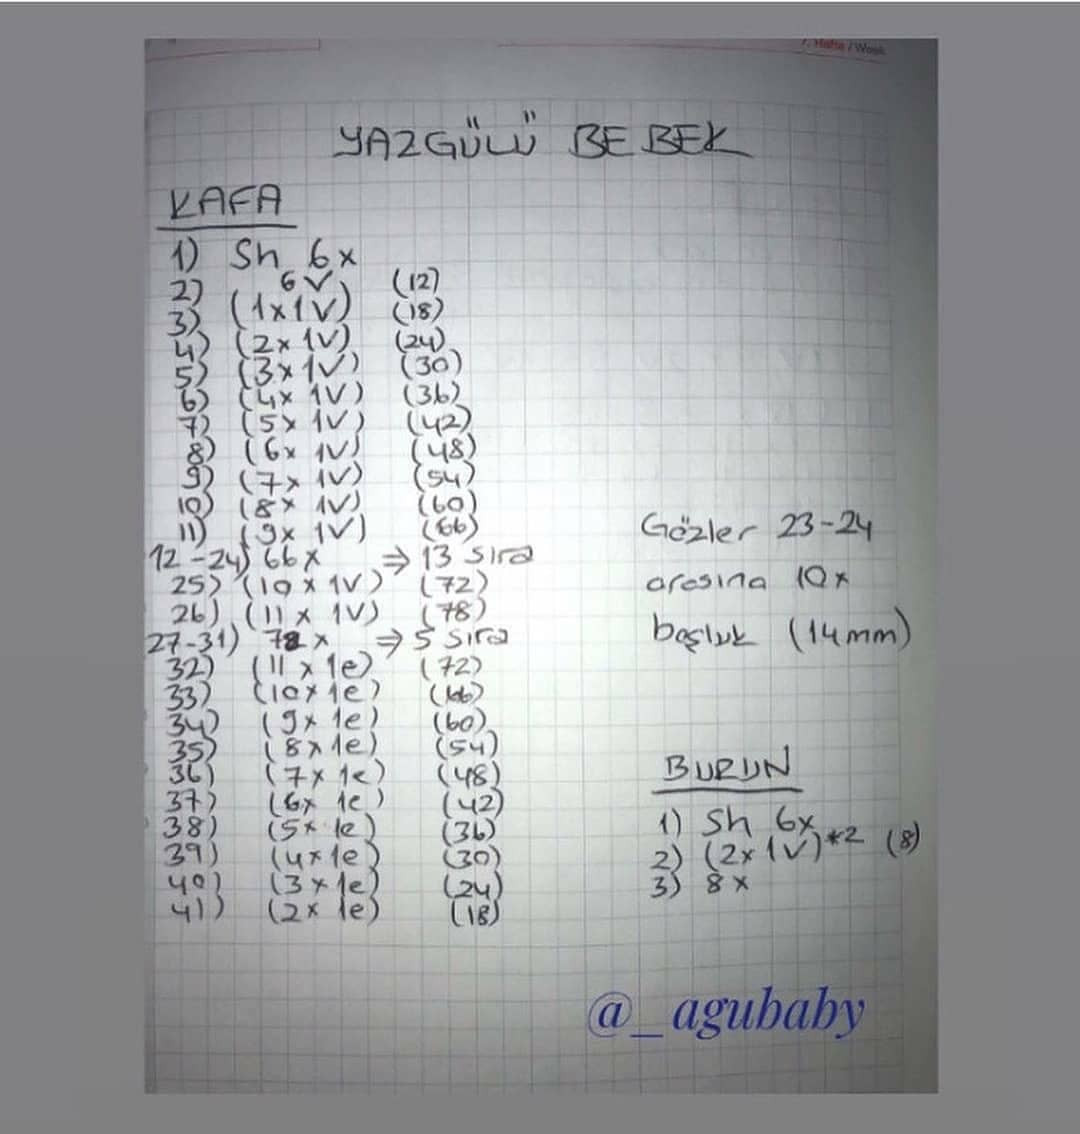 7. Hafta / Week
YAZGÜLÜ BEBEK
KAFA
1) Sh 6x
2) 6V (12)
3) (1x1V) (18)
4) (2x 1V) (24)
5) (3x 1V) (30)
6) (4x 1V) (36)
7) (5x 1V) (42)
8) (6x 1V) (48)
9) (7x 1V) (54)
10) (8x 1V) (60)
11) (9x 1V) (66)
12-24) 66x ⇒ 13 sıra
25) (10x 1V) (72)
26) (11x 1V) (78)
27-31) 78x ⇒ 5 sıra
32) (11x 1e) (72)
33) (10x 1e) (66)
34) (9x 1e) (60)
35) (8x 1e) (54)
36) (7x 1e) (48)
37) (6x 1e) (42)
38) (5x 1e) (36)
39) (4x 1e) (30)
40) (3x 1e) (24)
41) (2x 1e) (18)
Gözler 23-24
arasına 10x
boşluk (14mm)
BURUN
1) Sh 6x
2) (2x 1V)*2 (8)
3) 8x
@_agubaby